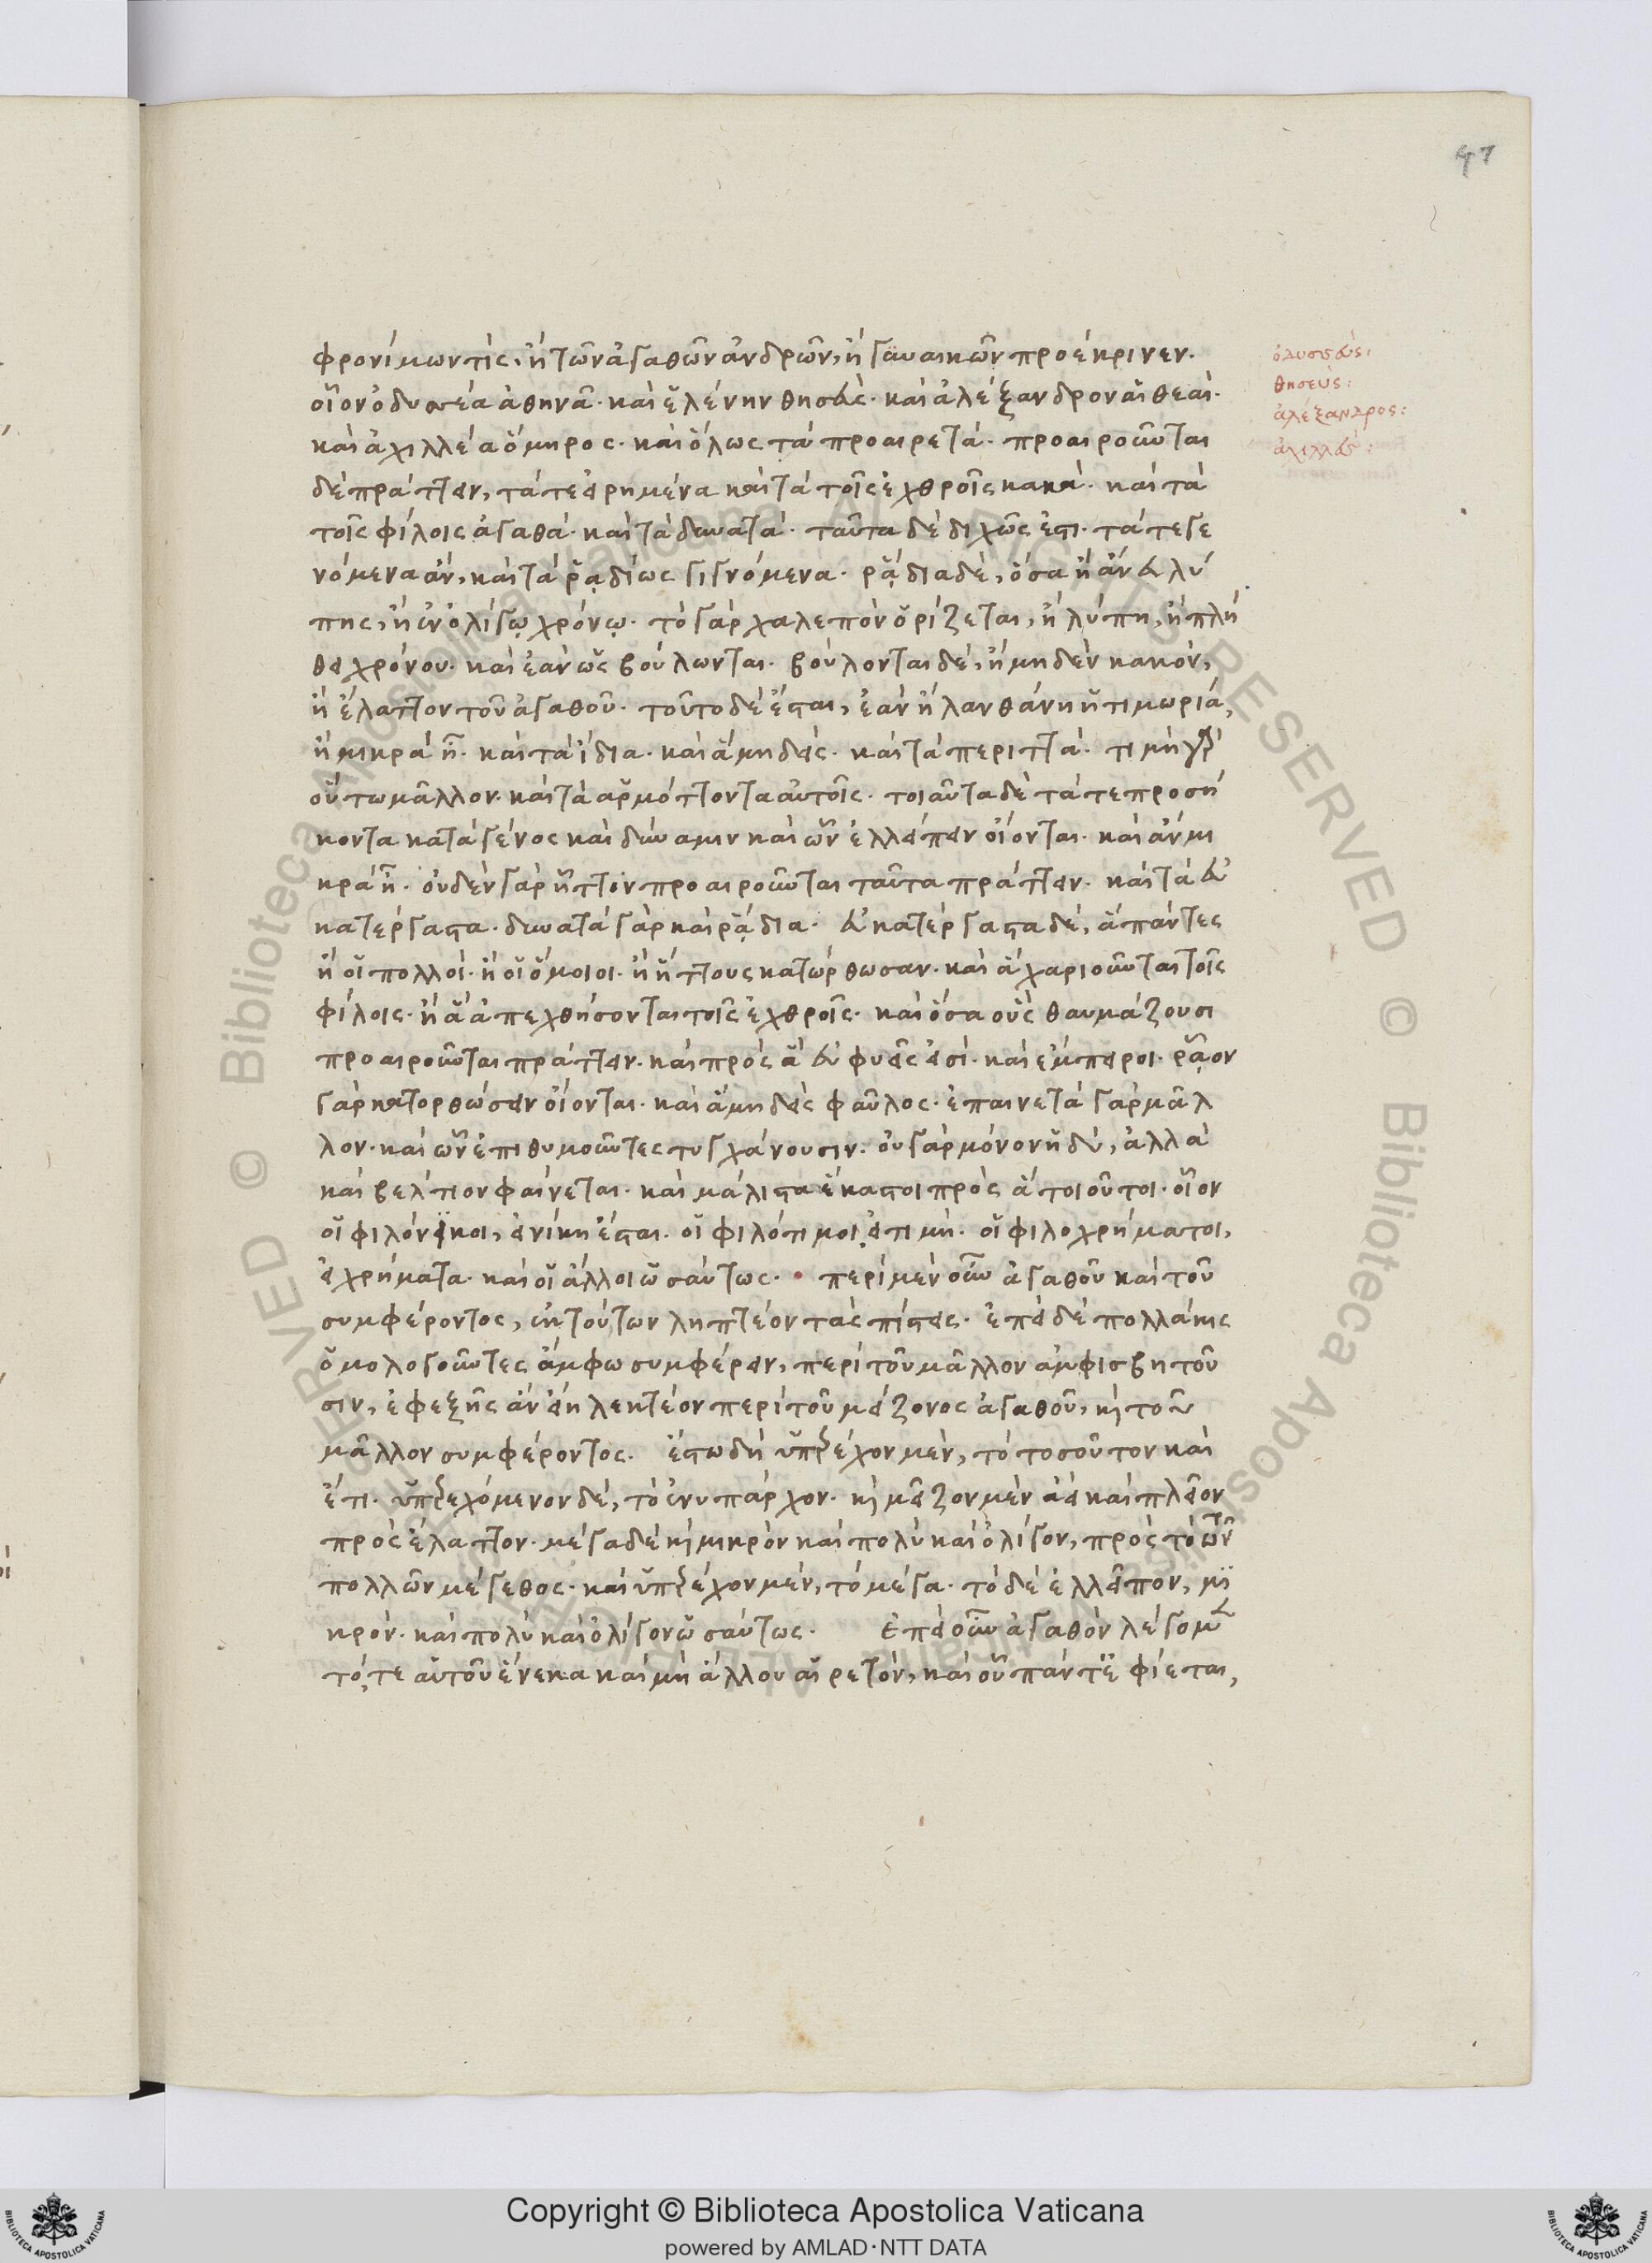 47
φρονίμων τὶς, ἢ τῶν ἀγαθῶν ἀνδρῶν, ἢ γυναικῶν προέκρινεν.
οἷον ὀδυσσέα ἀθηνᾶ· καὶ ἑλένην θησεὺς· καὶ ἀλέξανδρον αἱ θεαὶ·
καὶ ἀχιλλέα ὅμηρος· καὶ ὅλως τὰ προαιρετά· προαιροῦνται
δὲ πράττειν, τά τε εἰρημένα καὶ τὰ τοῖς ἐχθροῖς κακὰ· καὶ τὰ
τοῖς φίλοις ἀγαθά· καὶ τὰ δυνατά· ταῦτα δὲ διχῶς ἐστι· τά τε γε
νόμενα ἄν, καὶ τὰ ῥᾳδίως γιγνόμενα· ῥᾴδια δὲ, ὅσα ἢ ἄνευ λύ
πης, ἢ ἐν ὀλίγῳ χρόνῳ· τὸ γὰρ χαλεπὸν ὁρίζεται, ἢ λύπη, ἢ πλή
θει χρόνου· καὶ ἐὰν ὡς βούλωνται· βούλονται δὲ, ἢ μηδὲν κακόν,
ἢ ἔλαττον τοῦ ἀγαθοῦ· τοῦτο δὲ ἔσται, ἐὰν ἢ λανθάνη ἡ τιμωρία,
ἢ μικρὰ ᾖ· καὶ τὰ ἴδια· καὶ ἃ μηδείς· καὶ τὰ περιττά· τιμὴ γὰρ
οὕτω μᾶλλον· καὶ τὰ ἁρμόττοντα αὐτοῖς· τοιαῦτα δὲ τά τε προσή
κοντα κατὰ γένος καὶ δύναμιν καὶ ὧν ἐλλείπειν οἴονται· καὶ ἂν μι
κρὰ ᾖ· οὐδὲν γὰρ ἧττον προαιροῦνται ταῦτα πράττειν· καὶ τὰ εὐ
κατέργαστα· δυνατὰ γὰρ καὶ ῥᾴδια· εὐκατέργαστα δέ, ἃ πάντες
ἢ οἱ πολλοί· ἢ οἱ ὅμοιοι· ἢ ἥττους κατώρθωσαν· καὶ ἃ χαριοῦνται τοῖς
φίλοις· ἢ ἃ ἀπεχθήσονται τοῖς ἐχθροῖς· καὶ ὅσα οὓς θαυμάζουσι
προαιροῦνται πράττειν· καὶ πρὸς ἃ εὐφυεῖς εἰσὶ· καὶ ἔμπειροι· ῥᾷον
γὰρ κατορθώσειν οἴονται· καὶ ἃ μηδεὶς φαῦλος· ἐπαινετὰ γὰρ μᾶλ
λον· καὶ ὧν ἐπιθυμοῦντες τυγχάνουσιν· οὐ γὰρ μόνον ἡδύ, ἀλλὰ
καὶ βέλτιον φαίνεται· καὶ μάλιστα ἕκαστοι πρὸς ἃ τοιοῦτοι· οἷον
οἱ φιλόνεικοι, εἰ νίκη ἔσται· οἱ φιλότιμοι, εἰ τιμὴ· οἱ φιλοχρήματοι,
εἰ χρήματα· καὶ οἱ ἄλλοι ὡσαύτως· περὶ μὲν οὖν ἀγαθοῦ καὶ τοῦ
συμφέροντος, ἐκ τούτων ληπτέον τὰς πίστεις· ἐπεὶ δὲ πολλάκις
ὁμολογοῦντες ἄμφω συμφέρειν, περὶ τοῦ μᾶλλον ἀμφισβητοῦ
σιν, ἐφεξῆς ἂν εἴη λεκτέον περὶ τοῦ μείζονος ἀγαθοῦ, κὶ τοῦ
μᾶλλον συμφέροντος. ἔστω δὴ ὑπερέχον μὲν, τὸ τοσοῦτον καὶ
ἔτι· ὑπερεχόμενον δὲ, τὸ ἐνυπάρχον· κὶ μεῖζον μὲν ἀεὶ καὶ πλεῖον
πρὸς ἔλαττον· μέγα δὲ κὶ μικρὸν καὶ πολὺ καὶ ὀλίγον, πρὸς τὸ τῶν
πολλῶν μέγεθος· καὶ ὑπερέχον μὲν, τὸ μέγα· τὸ δὲ ἐλλεῖπον, μι
κρόν· καὶ πολὺ καὶ ὀλίγον ὡσαύτως· ἐπεὶ οὖν ἀγαθὸν λέγομεν
τό, τε αὐτοῦ ἕνεκα καὶ μὴ ἄλλου αἱρετόν, καὶ οὗ πάντ' ἐφίεται,
ὀδυσσεὺς:
θησεὺς:
ἀλέξανδρος:
ἀχιλλεὺς:
© Biblioteca Apostolica Vaticana ALL RIGHTS RESERVED
Copyright © Biblioteca Apostolica Vaticana
powered by AMLAD·NTT DATA
BIBLIOTECA APOSTOLICA VATICANA
BIBLIOTECA APOSTOLICA VATICANA